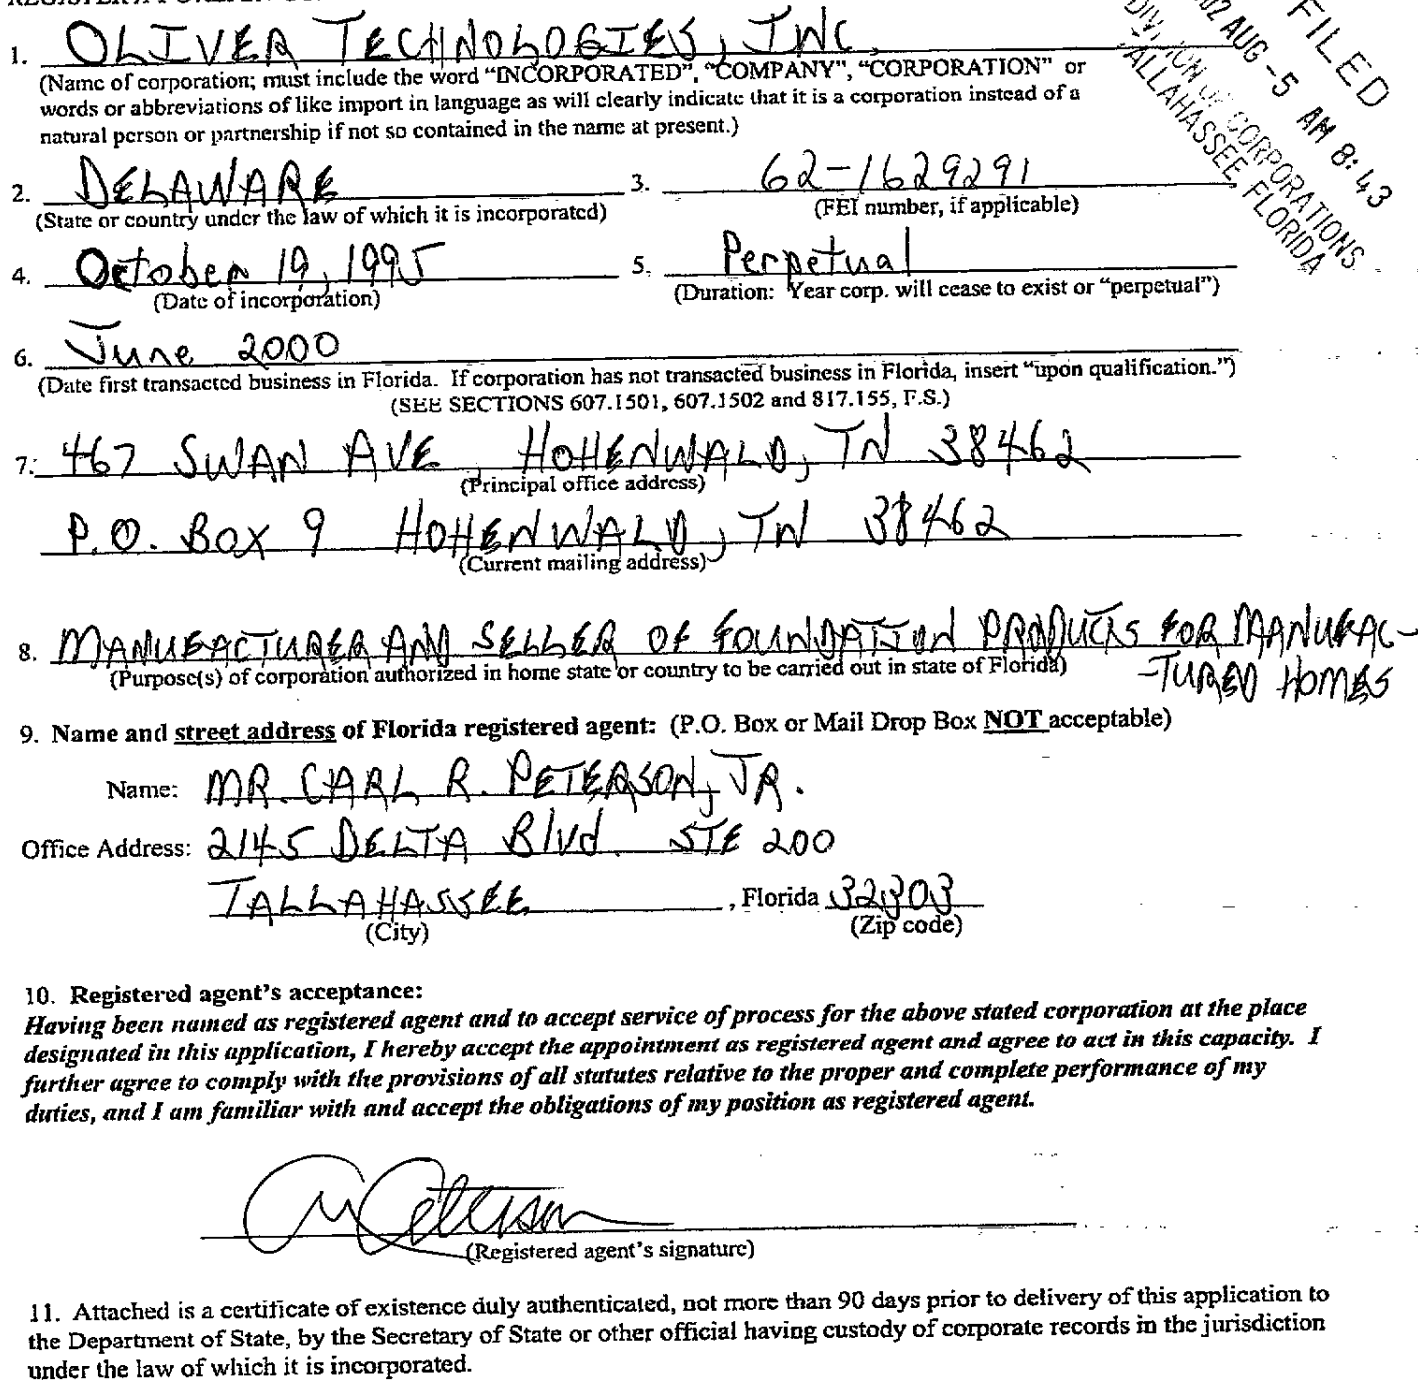 1. OLIVER TECHNOLOGIES, INC.
(Name of corporation; must include the word "INCORPORATED", "COMPANY", "CORPORATION" or
words or abbreviations of like import in language as will clearly indicate that it is a corporation instead of a
natural person or partnership if not so contained in the name at present.)
FILED
02 AUG -5 AM 8:43
CORPORATIONS
TALLAHASSEE, FLORIDA
2. DELAWARE 3. 62-1629291
(State or country under the law of which it is incorporated) (FEI number, if applicable)
4. October 19, 1995 5. Perpetual
(Date of incorporation) (Duration: Year corp. will cease to exist or "perpetual")
6. June 2000
(Date first transacted business in Florida. If corporation has not transacted business in Florida, insert "upon qualification.")
(SEE SECTIONS 607.1501, 607.1502 and 817.155, F.S.)
7. 467 SWAN AVE, HOHENWALD, TN 38462
(Principal office address)
P.O. BOX 9 HOHENWALD, TN 38462
(Current mailing address)
8. MANUFACTURER AND SELLER OF FOUNDATION PRODUCTS FOR MANUFAC-
-TURED HOMES
(Purpose(s) of corporation authorized in home state or country to be carried out in state of Florida)
9. Name and street address of Florida registered agent: (P.O. Box or Mail Drop Box NOT acceptable)
Name: MR. CARL R. PETERSON, JR.
Office Address: 2145 DELTA Blvd. STE 200
TALLAHASSEE, Florida 32303
(City) (Zip code)
10. Registered agent's acceptance:
Having been named as registered agent and to accept service of process for the above stated corporation at the place
designated in this application, I hereby accept the appointment as registered agent and agree to act in this capacity. I
further agree to comply with the provisions of all statutes relative to the proper and complete performance of my
duties, and I am familiar with and accept the obligations of my position as registered agent.
(Registered agent's signature)
11. Attached is a certificate of existence duly authenticated, not more than 90 days prior to delivery of this application to
the Department of State, by the Secretary of State or other official having custody of corporate records in the jurisdiction
under the law of which it is incorporated.